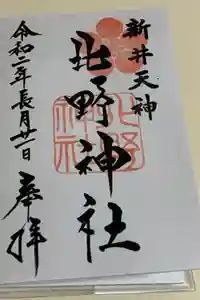 新井天神
北野神社
奉拝
令和二年長月廿一日